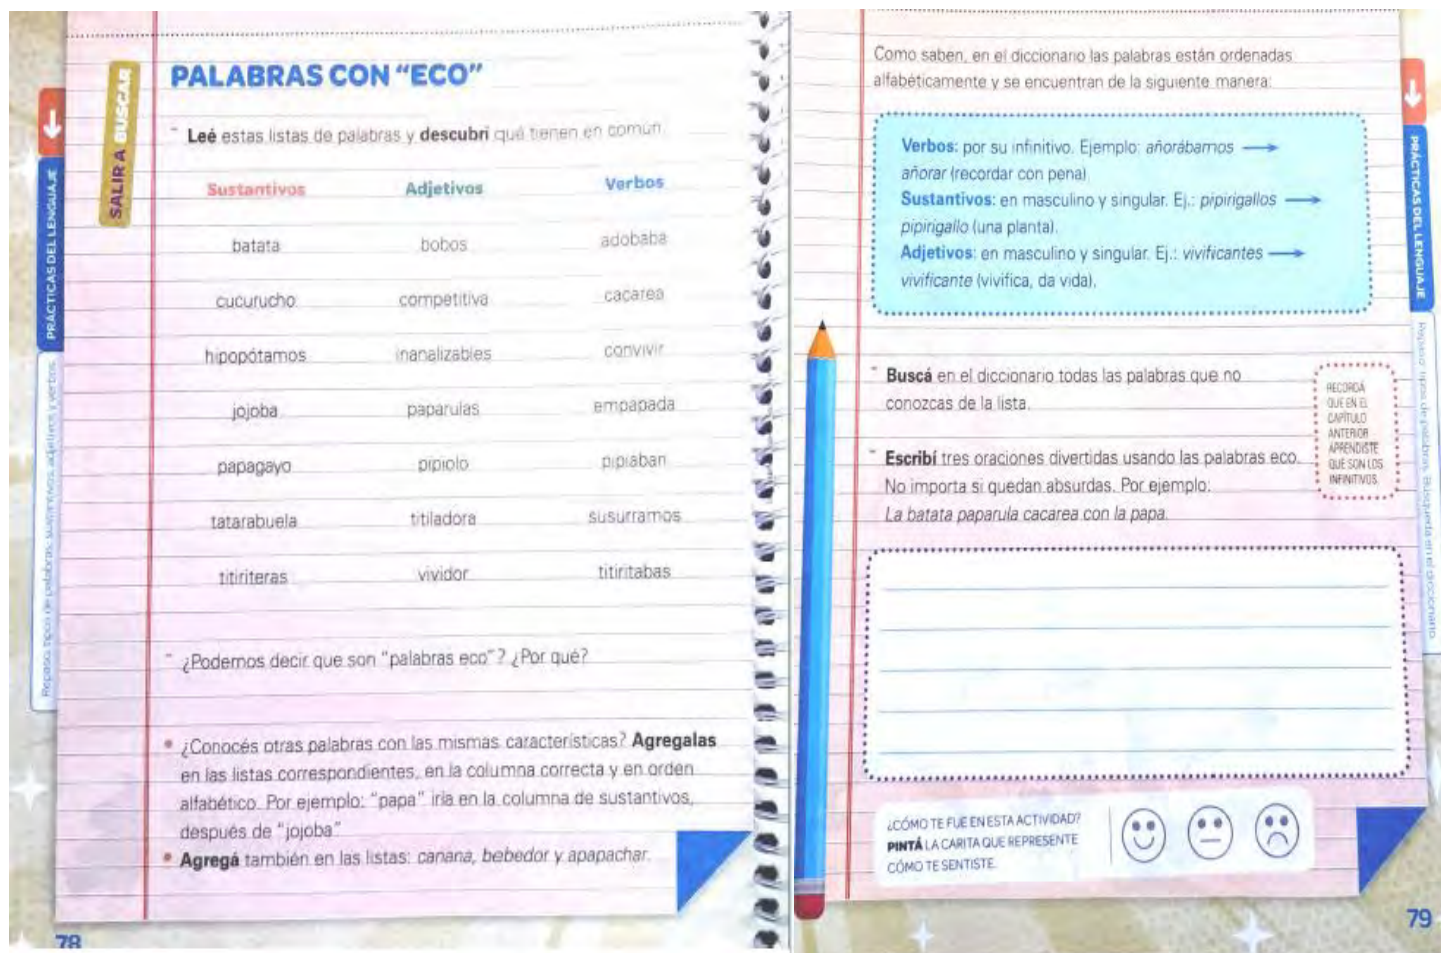 SALIR A BUSCAR
PALABRAS CON “ECO”
Leé estas listas de palabras y descubrí qué tienen en común.
Sustantivos Adjetivos Verbos
batata bobos adobaba
cucurucho competitiva cacarea
hipopótamos inanalizables convivir
jojoba paparulas empapada
papagayo pipiolo pipiaban
tatarabuela titiladora susurramos
titiriteras vividor titiritabas
¿Podemos decir que son “palabras eco”? ¿Por qué?
• ¿Conocés otras palabras con las mismas características? Agregalas
en las listas correspondientes, en la columna correcta y en orden
alfabético. Por ejemplo: “papa” iría en la columna de sustantivos,
después de “jojoba”.
• Agregá también en las listas: canana, bebedor y apapachar.
PRÁCTICAS DEL LENGUAJE
Repaso: tipos de palabras: sustantivos, adjetivos y verbos.
78
Como saben, en el diccionario las palabras están ordenadas
alfabéticamente y se encuentran de la siguiente manera:
Verbos: por su infinitivo. Ejemplo: añorábamos →
añorar (recordar con pena).
Sustantivos: en masculino y singular. Ej.: pipirigallos →
pipirigallo (una planta).
Adjetivos: en masculino y singular. Ej.: vivificantes →
vivificante (vivifica, da vida).
Buscá en el diccionario todas las palabras que no
conozcas de la lista.
Escribí tres oraciones divertidas usando las palabras eco.
No importa si quedan absurdas. Por ejemplo:
La batata paparula cacarea con la papa.
RECORDÁ
QUE EN EL
CAPÍTULO
ANTERIOR
APRENDISTE
QUÉ SON LOS
INFINITIVOS.
¿CÓMO TE FUE EN ESTA ACTIVIDAD?
PINTÁ LA CARITA QUE REPRESENTE
CÓMO TE SENTISTE.
PRÁCTICAS DEL LENGUAJE
Repaso: tipos de palabras. Búsqueda en el diccionario.
79